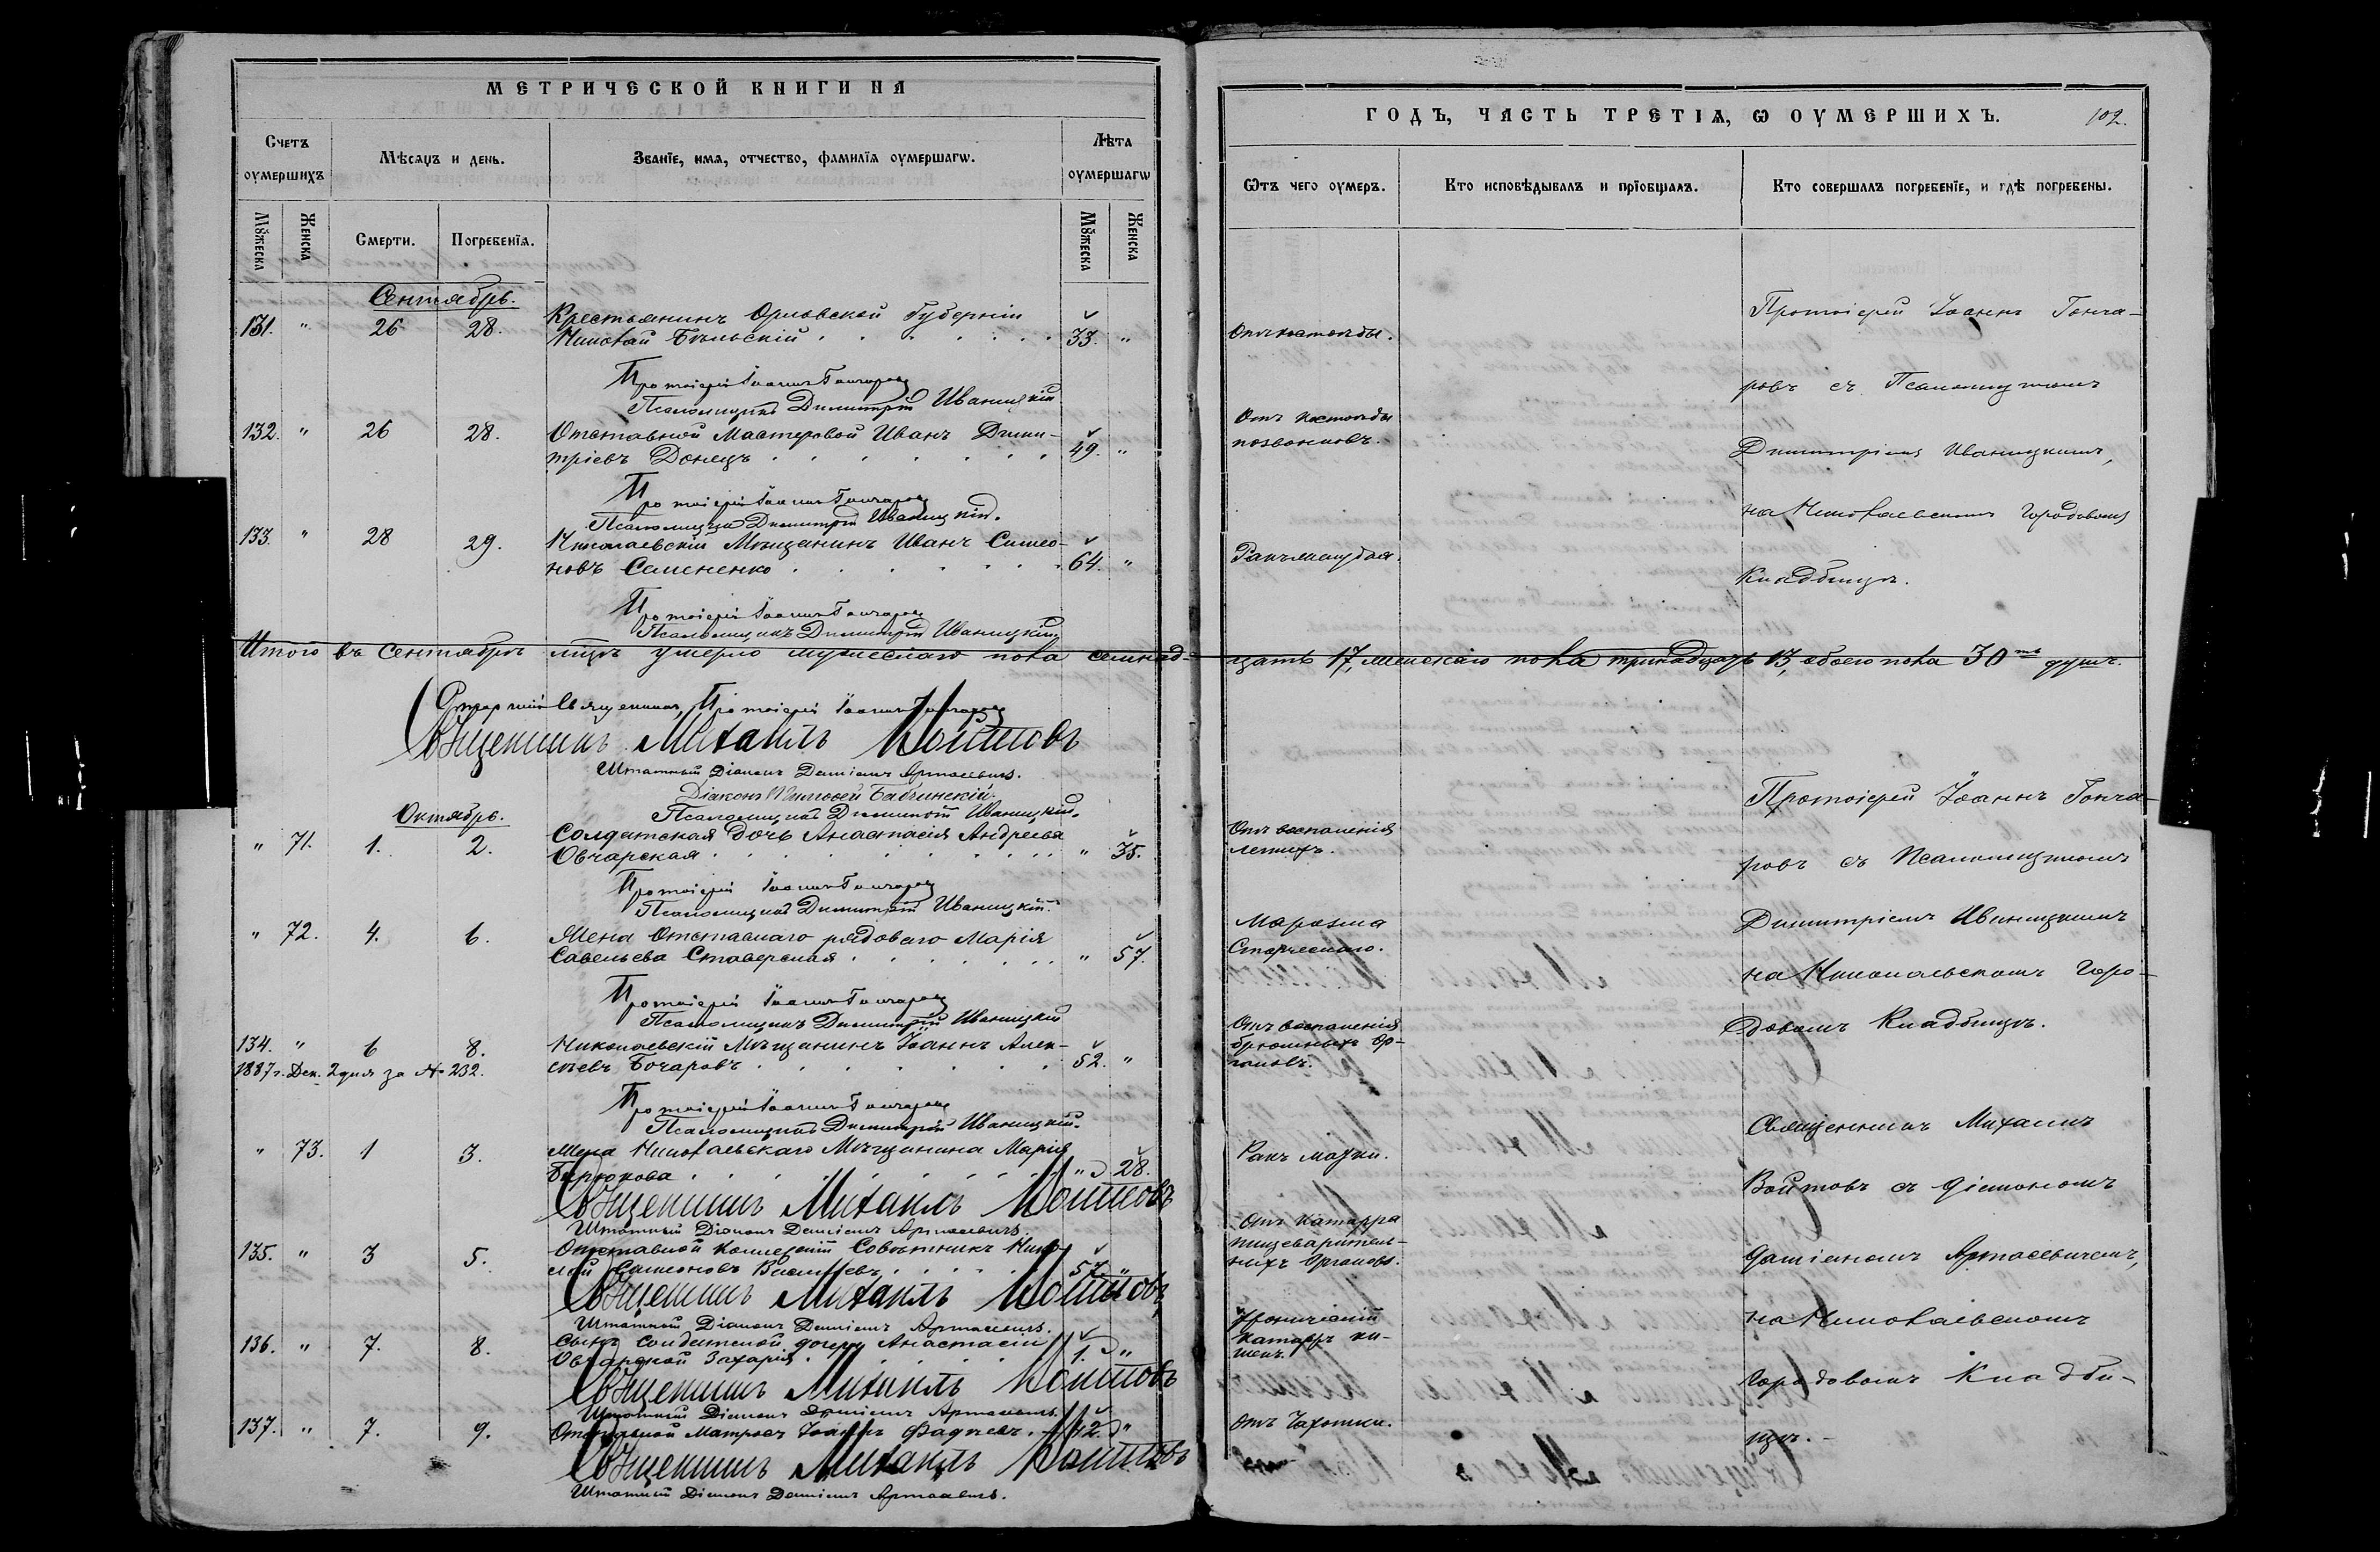 МЕТРИЧЕСКОЙ КНИГИ НА
Счетъ оумершихъ
Мѣсяцъ и день.
Званїе, имя, отчество, фамилїя оумершагѡ.
Лѣта оумершагѡ
Мꙋжеска
Женска
Смерти.
Погребенїя.
Мꙋжеска
Женска
Сентябрь.
131. " 26 28. Крестьянинъ Орловской Губерніи
Николай Бѣльскій 33. "
Протоіерей Іоаннъ Гончаровъ
Псаломщикъ Димитрій Иваницкій
132. " 26 28. Отставной Мастеровой Иванъ Дими-
тріевъ Донецъ 49. "
Протоіерей Іоаннъ Гончаровъ
Псаломщикъ Димитрій Иваницкій.
133. " 28 29. Николаевскій Мѣщанинъ Иванъ Симео-
новъ Семененко 64. "
Протоіерей Іоаннъ Гончаровъ
Псаломщикъ Димитрій Иваницкій
Итого въ Сентябрѣ мцѣ умерло мужескаго пола семнад-
Старшій Священникъ, Протоіерей Іоаннъ Гончаровъ
Священникъ Михаилъ Войтовъ
Штатный Діаконъ Даміанъ Артасевичъ.
Діаконъ Бабчинскій.
Псаломщикъ Димитрій Иваницкій.
Октябрь.
" 71. 1. 2. Солдатская Дочь Анастасія Андреева
Овчарская " 35.
Протоіерей Іоаннъ Гончаровъ
Псаломщикъ Димитрій Иваницкій.
" 72. 4. 6. Жена Отставнаго рядоваго Марія
Савельева Ставерская " 57.
Протоіерей Іоаннъ Гончаровъ
Псаломщикъ Димитрій Иваницкій
134. " 6 8. Николаевскій Мѣщанинъ Іоаннъ Алек-
сѣевъ Бочаровъ 52. "
1887 г. Дек. 2 дня за № 232.
Протоіерей Іоаннъ Гончаровъ
Псаломщикъ Димитрій Иваницкій.
" 73. 1 3. Жена Николаевскаго Мѣщанина Марія
Бирюкова " 28.
Священникъ Михаилъ Войтовъ
Штатный Діаконъ Даміанъ Артасевичъ.
135. " 3 5. Отставной Коллежскій Совѣтникъ Нико-
лай Симеоновъ Васильевъ 57. "
Священникъ Михаилъ Войтовъ
Штатный Діаконъ Даміанъ Артасевичъ.
136. " 7. 8. Сынъ Солдатской дочери Анастасіи
Овчарской Захарія 1. "
Священникъ Михаилъ Войтовъ
Штатный Діаконъ Даміанъ Артасевичъ.
137. " 7. 9. Отставной Матросъ Іоаннъ Фадѣевъ. 42. "
Священникъ Михаилъ Войтовъ
Штатный Діаконъ Даміанъ Артасевичъ.
ГОДЪ, ЧАСТЬ ТРЕТІѦ, Ѡ ОУМЕРШИХЪ.
102.
Ѿтъ чего оумеръ.
Кто исповѣдывалъ и прїобщалъ.
Кто совершалъ погребенїе, и гдѣ погребены.
Отъ костоѣды.
Отъ костоѣды
позвонковъ.
Протоіерей Іоаннъ Гонча-
ровъ съ Псаломщикомъ
Димитріемъ Иваницкимъ,
на Николаевскомъ Городовомъ
Кладбищѣ.
цать 17, женскаго пола тринадцать 13, обоего пола 30ть душъ.
Отъ воспаленія
легкихъ.
Маразма
Старческаго.
Отъ воспаленія
брюшныхъ Ор-
гановъ.
Протоіерей Іоаннъ Гонча-
ровъ съ Псаломщикомъ
Димитріемъ Иваницкимъ
на Николаевскомъ Горо-
довомъ Кладбищѣ.
Ракъ матки.
Отъ Катарра
пищеваритель-
ныхъ Органовъ.
Хроническій
Катарръ ки-
шекъ.
Отъ Чахотки.
Священникъ Михаилъ
Войтовъ съ діакономъ
Даміаномъ Артасевичемъ,
на Николаевскомъ
Городовомъ Кладби-
щѣ.